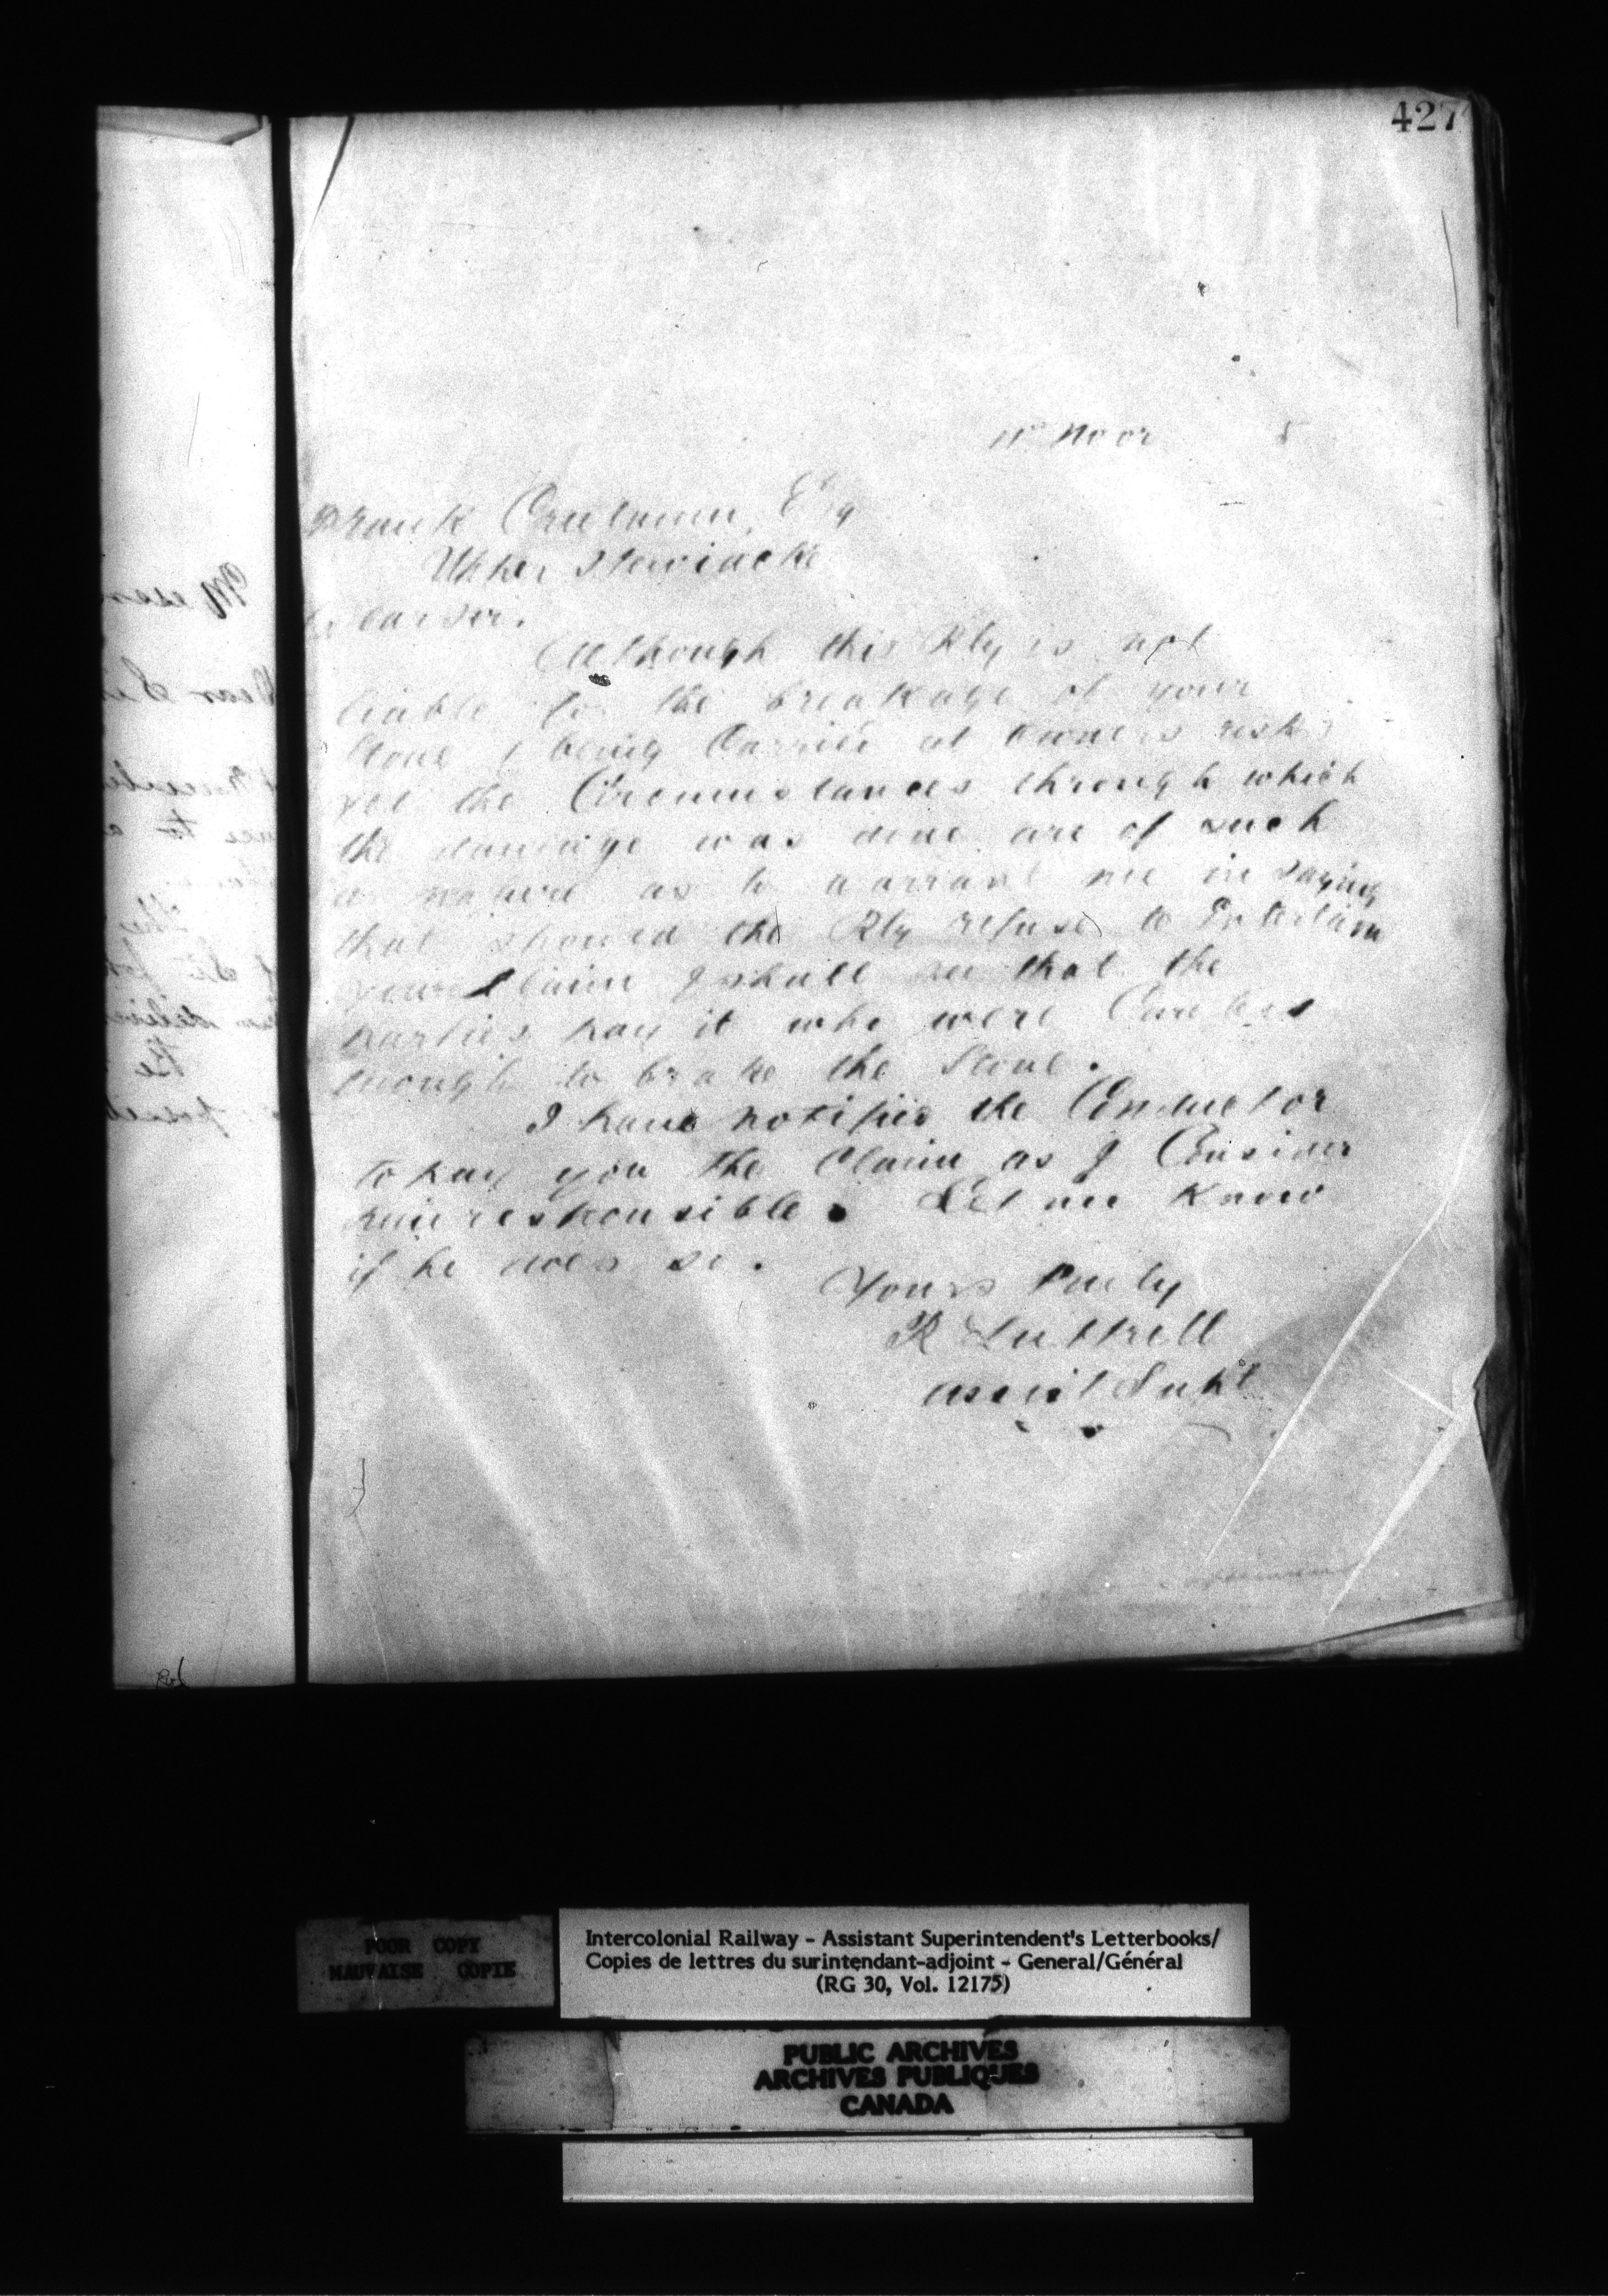 427
11th Novr 5
Frank Creelman, Esq
Upper Stewiacke
Dear Sir.
Although this Rly is not
liable for the breakage of your
Stove (being Carried at Owners risk)
yet the Circumstances through which
the damage was done are of such
a nature as to warrant me in saying
that should the Rly refuse to Entertain
your Claim I shall see that the
parties pay it who were Careless
enough to brake the Stove.
I have notified the Conductor
to pay you the Claim as I Consider
him responsible. Let me Know
if he does so.
Yours truly
R Luttrell
assist Supt
POOR COPY
MAUVAISE COPIE
Intercolonial Railway - Assistant Superintendent's Letterbooks/
Copies de lettres du surintendant-adjoint - General/Général
(RG 30, Vol. 12175)
PUBLIC ARCHIVES
ARCHIVES PUBLIQUES
CANADA